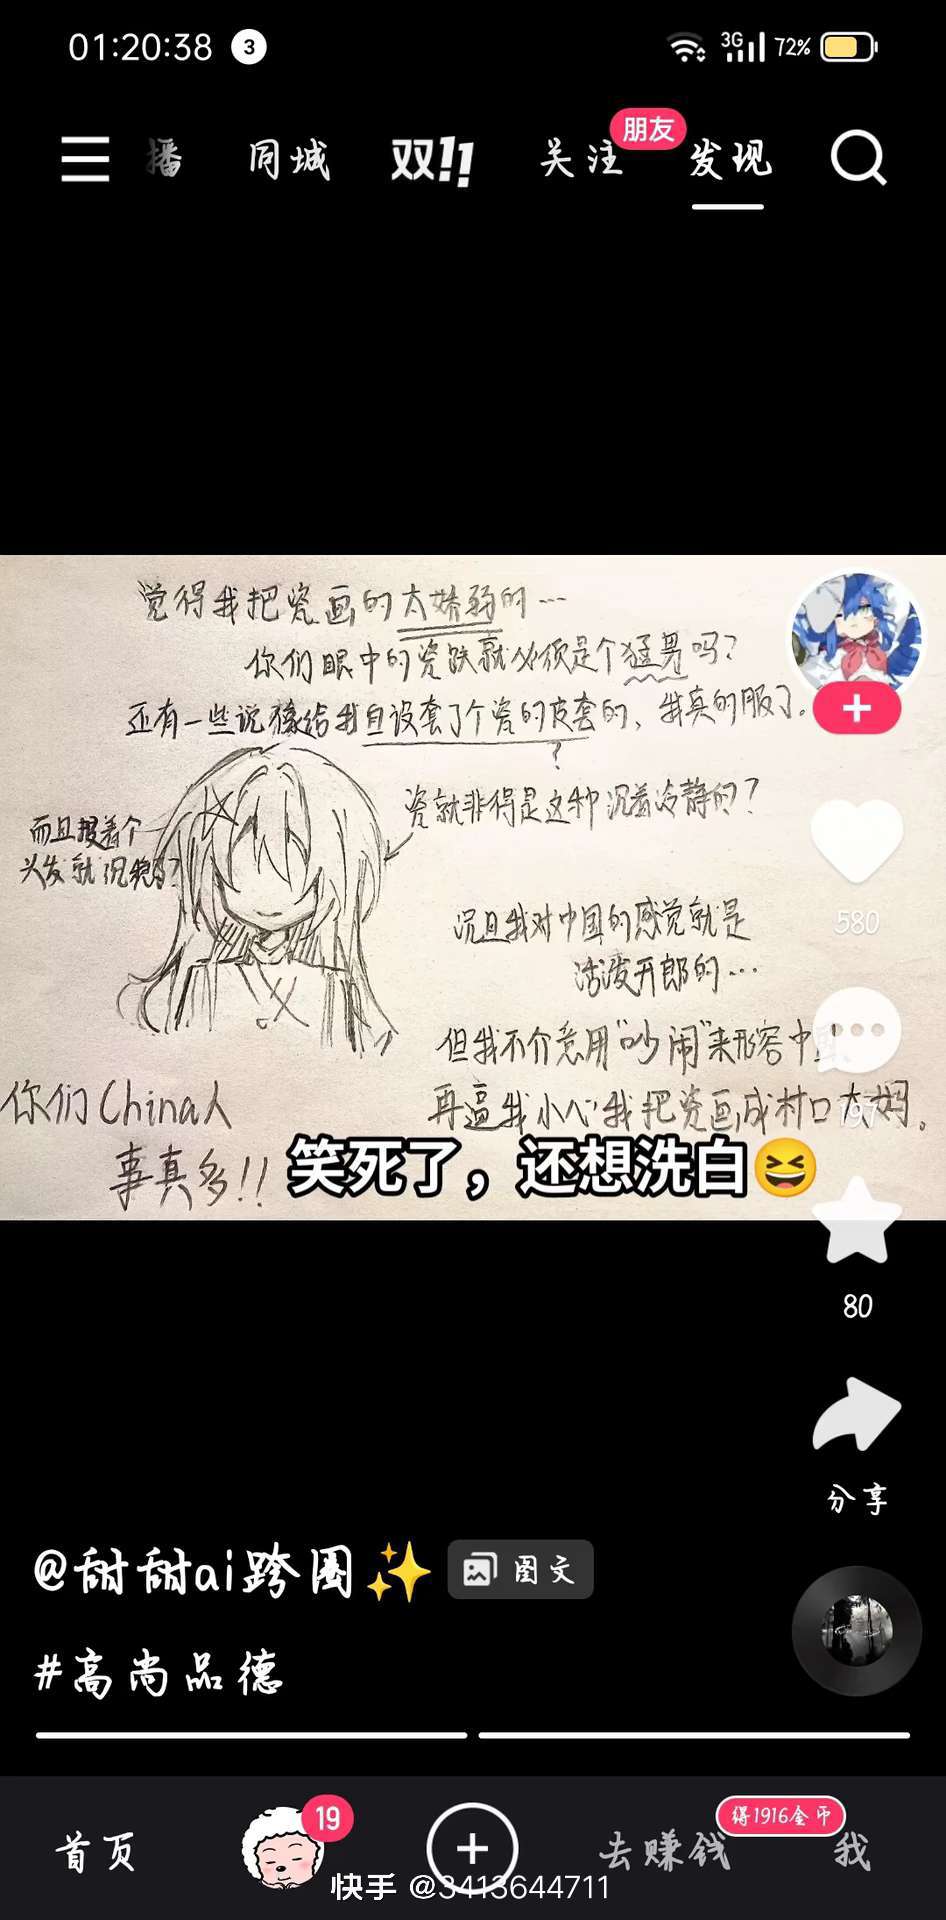 01:20:38
3
3G
72%
播
同城
双11
关注
朋友
发现
觉得我把瓷画的太娇弱的…
你们眼中的瓷就必须是个猛男吗?
还有一些说像给我自设套了个瓷的皮套的,我真的服了。
?
瓷就非得是这种沉着冷静的?
而且披着个
头发就沉稳了?
况且我对中国的感觉就是
活泼开郎的…
但我不介意用"吵闹"来形容中
再逼我小心我把瓷画成村口大妈。
你们China人
事真多!!
笑死了,还想洗白😆
580
80
分享
@甜甜ai跨圈✨
图文
#高尚品德
首页
19
去赚钱
得1916金币
我
快手 @3413644711